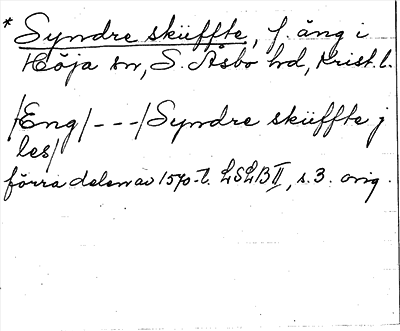 * Syndre sküffte, f. äng i
Höja sn, S. Åsbo hd, Krist. l.
/Eng/ - - - /Syndre sküffte j
les/
förra delen av 1570-t. LSLB II, s. 3. orig.